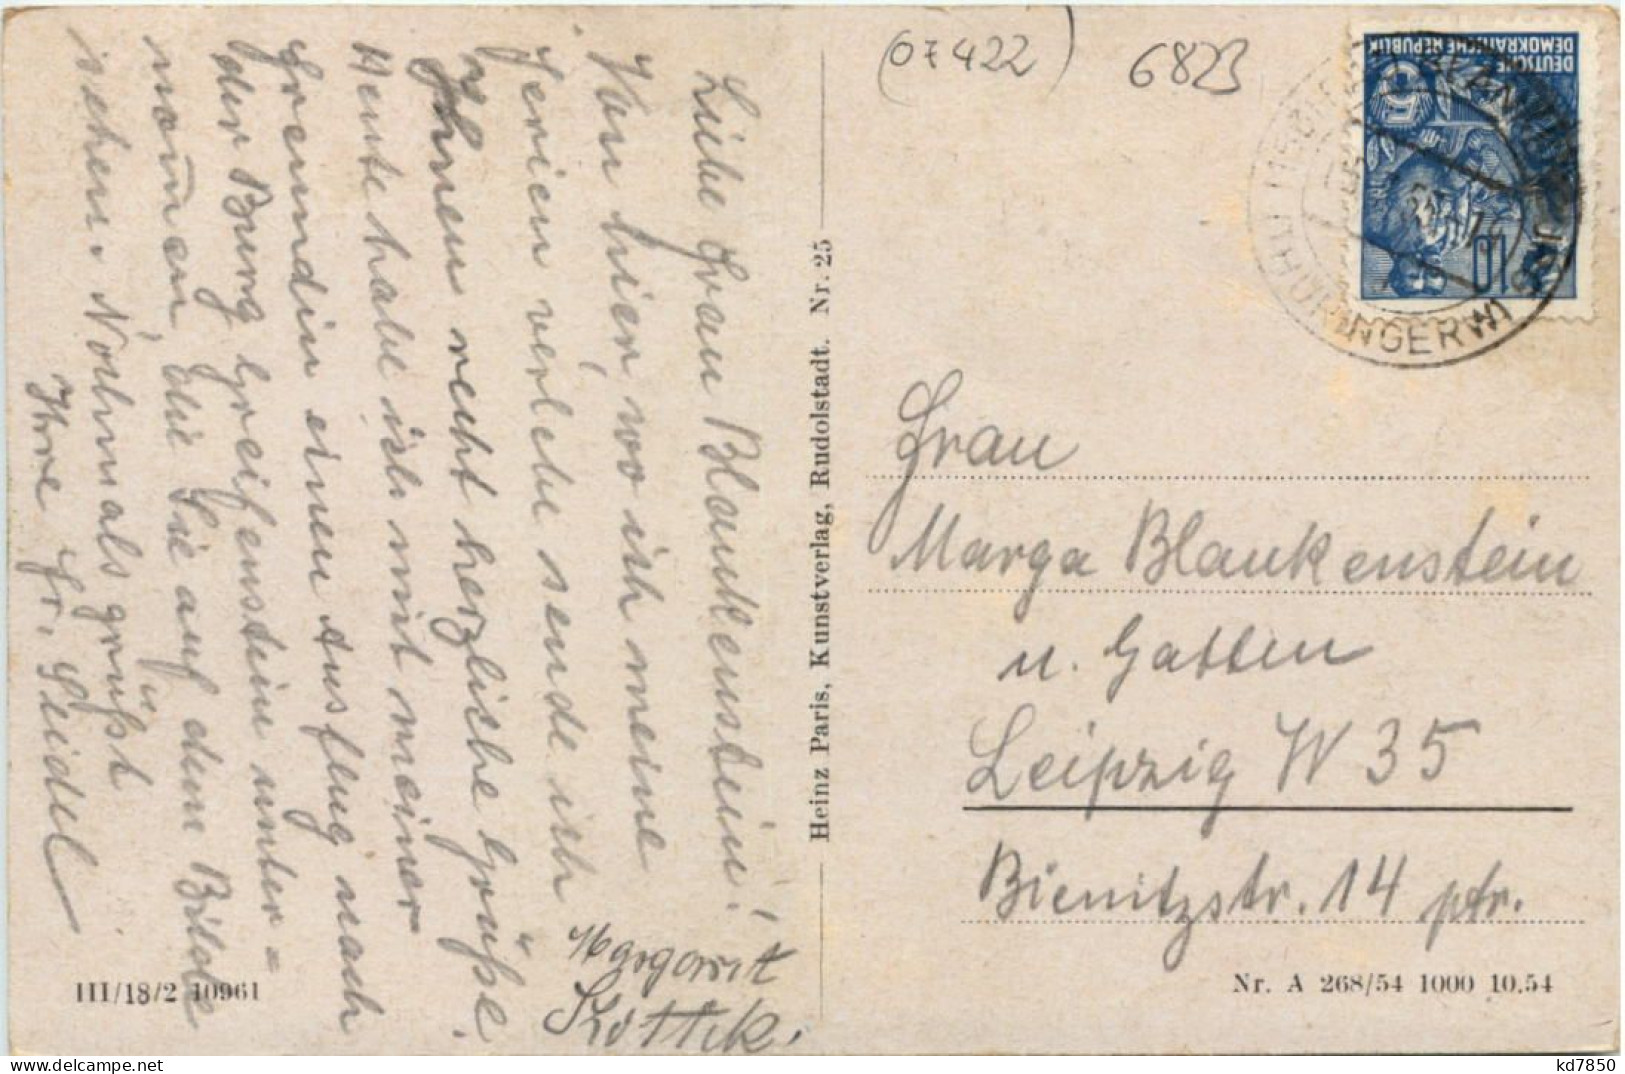 Liebe Frau Blankenstein!
Von hier, wo ich meine
Ferien verlebe sende ich
Ihnen recht herzliche Grüße.
Heute habe ich mit meiner
Freundin einen Ausflug nach
der Burg Greifenstein unter-
nom̄en, die Sie auf dem Bilde
sehen. Nochmals grüßt
Ihre Fr. Seidel
Margarit
III/18/2 10961
Heinz Paris, Kunstverlag, Rudolstadt. Nr. 25
(07422)
6823
DEUTSCHE
DEMOKRATISCHE REPUBLIK
10
BLANKENBURG
THÜRINGERW
Frau
Marga Blankenstein
u. Gatten
Leipzig W 35
Bienitzstr. 14 ptr.
Nr. A 268/54 1000 10.54
kd7850